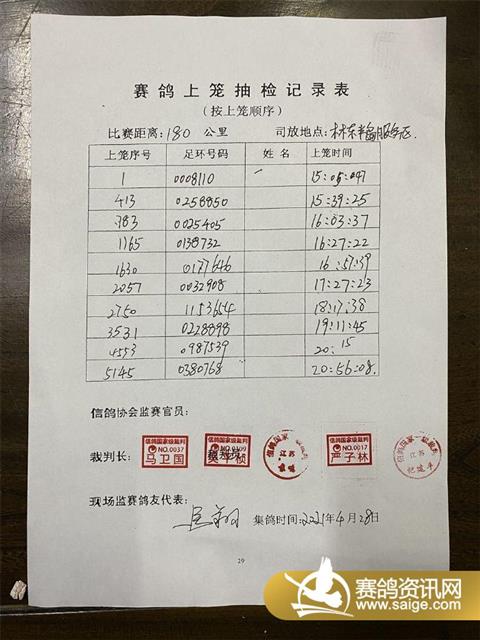 赛鸽上笼抽检记录表
(按上笼顺序)
比赛距离：180 公里 司放地点：服务区
上笼序号 足环号码 姓名 上笼时间
1 0008110 15:05:47
413 0258850 15:39:25
783 0025405 16:03:37
1165 0138732 16:27:22
1630 0177646 16:57:39
2057 0032908 17:27:23
2750 1153654 18:17:38
3531 0228898 19:11:45
4553 0987539 20:15
5145 0380768 20:56:08
信鸽协会监赛官员：
信鸽国家级裁判 信鸽国家级裁判
裁判长： NO.0037 NO.0017
马卫国 江苏 严子林 江苏
现场监赛鸽友代表：
集鸽时间：2021年4月28日
29
赛鸽资讯网
www.saige.com